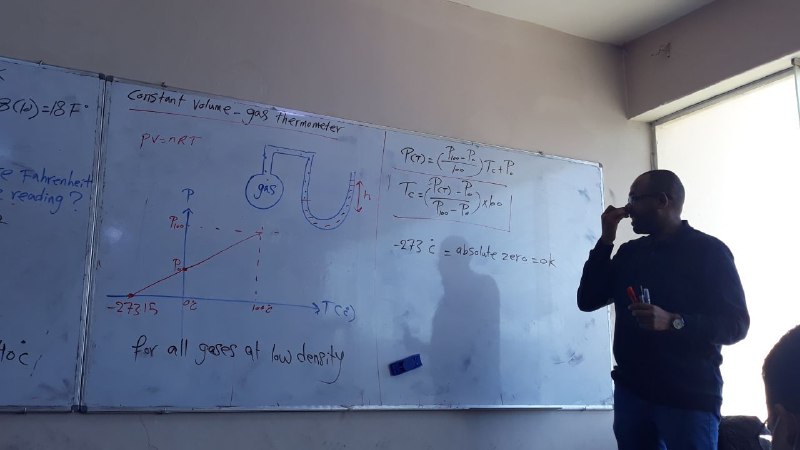 B(10)=18F°
Fahrenheit
reading?
40°C
Constant Volume - gas thermometer
PV=nRT
gas
h
P
P100
P0
-273.15
0°C
100°C
T(°C)
for all gases at low density
P(T) = (P100 - P0 / 100) Tc + P0
Tc = (P(T) - P0 / P100 - P0) × 100
-273°C = absolute zero = 0K